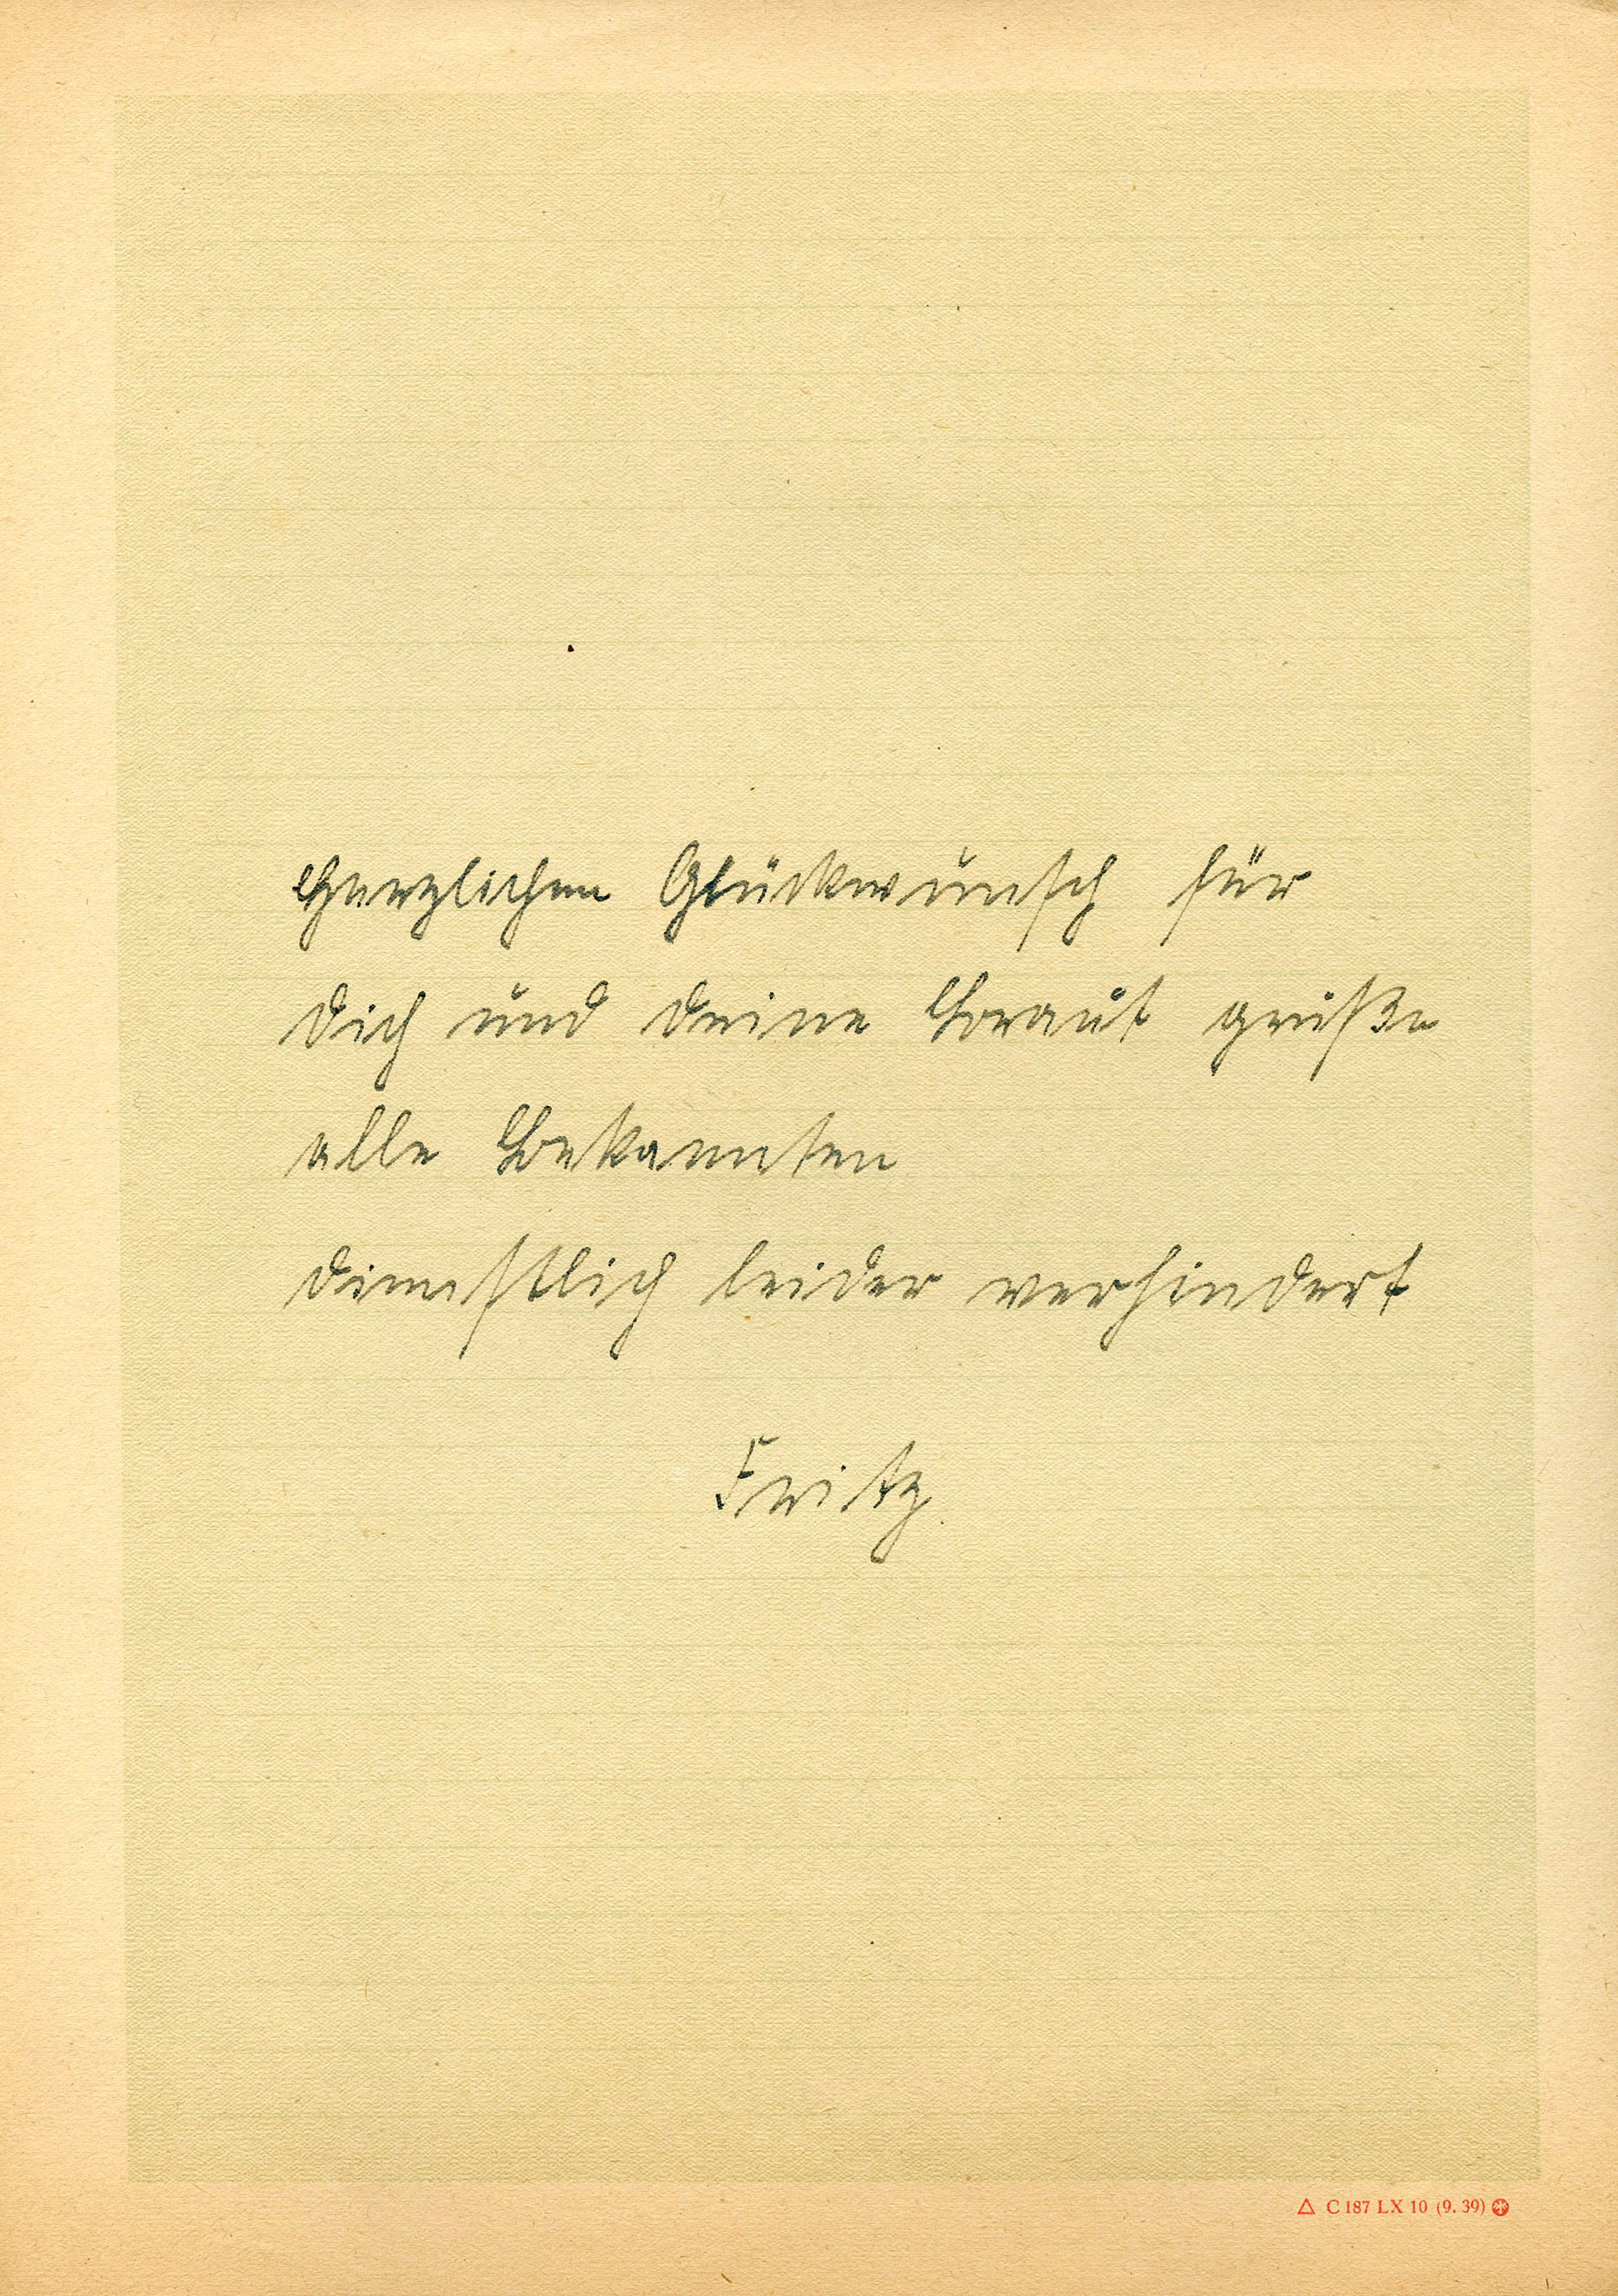 Herzlichen Glückwunsch für
dich und deine Braut grüße
alle Bekannten
dienstlich leider verhindert
Fritz.
△ C 187 LX 10 (9. 39)